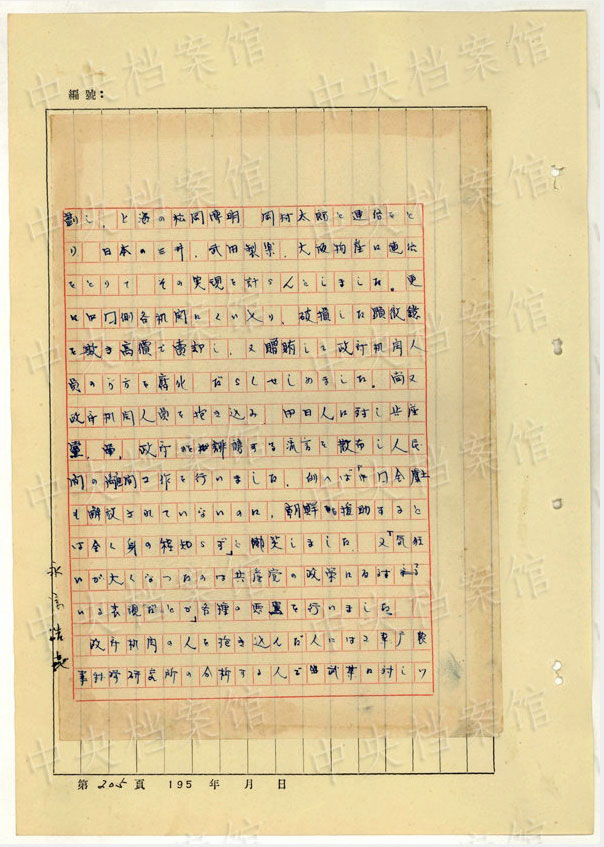 編號：
劃し、上海の松岡博明 岡村太郎と連絡をと
り 日本の三井、武田製薬、大阪物産に連絡
をとりて その実現を計らんとしました。更
に中国側各机関にくい入り、破損した顕微鏡
を 高價で売却し、又贈賄して政府机関人
員の を腐化 だらくせしめました。尚又
政府机関人員を抱き込み 中日人に対し共産
黨、 政府を誹謗する流言を散布し人民
間の離間工作を行いました。例へば「中国全土
も解放されていないのに、朝鮮を援助すると
は全く身の程知らず」と嘲笑しました 又「気狂
いが大くなったのは共産党の政策に
いる表現だとか」 を行いました
政府机関の人を抱き込んだ人には 農
事科学研究所の分析する人で 対しツ
永
第205頁 195 年 月 日
中央档案馆